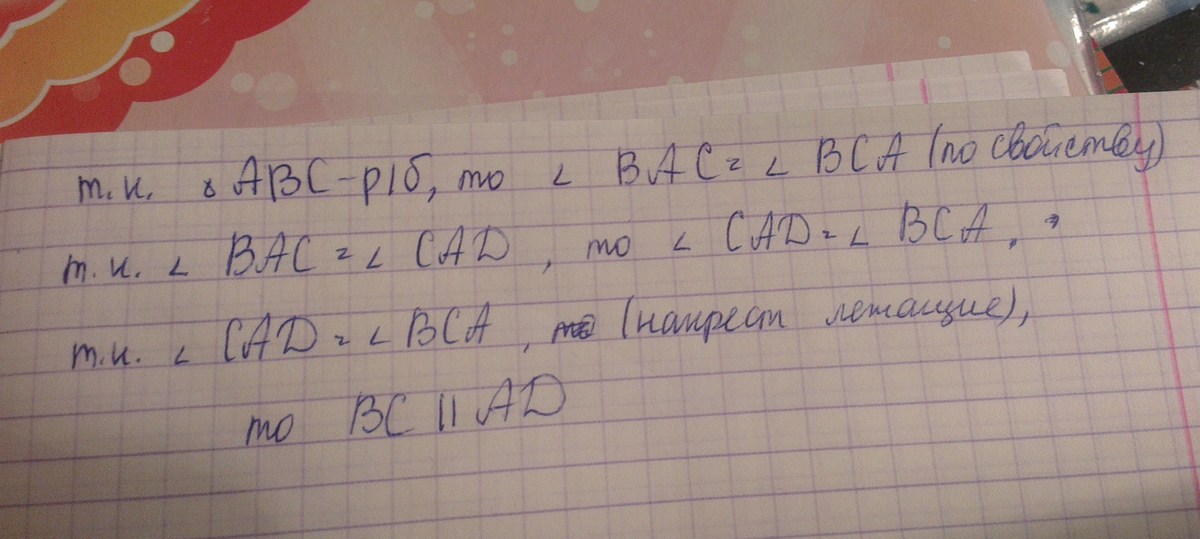 т.к. ▵ ABC-р/б, то ∠ BAC=∠ BCA (по свойству)
т.к. ∠ BAC=∠ CAD, то ∠ CAD=∠ BCA,
т.к. ∠ CAD=∠ BCA, (накрест лежащие),
то BC || AD